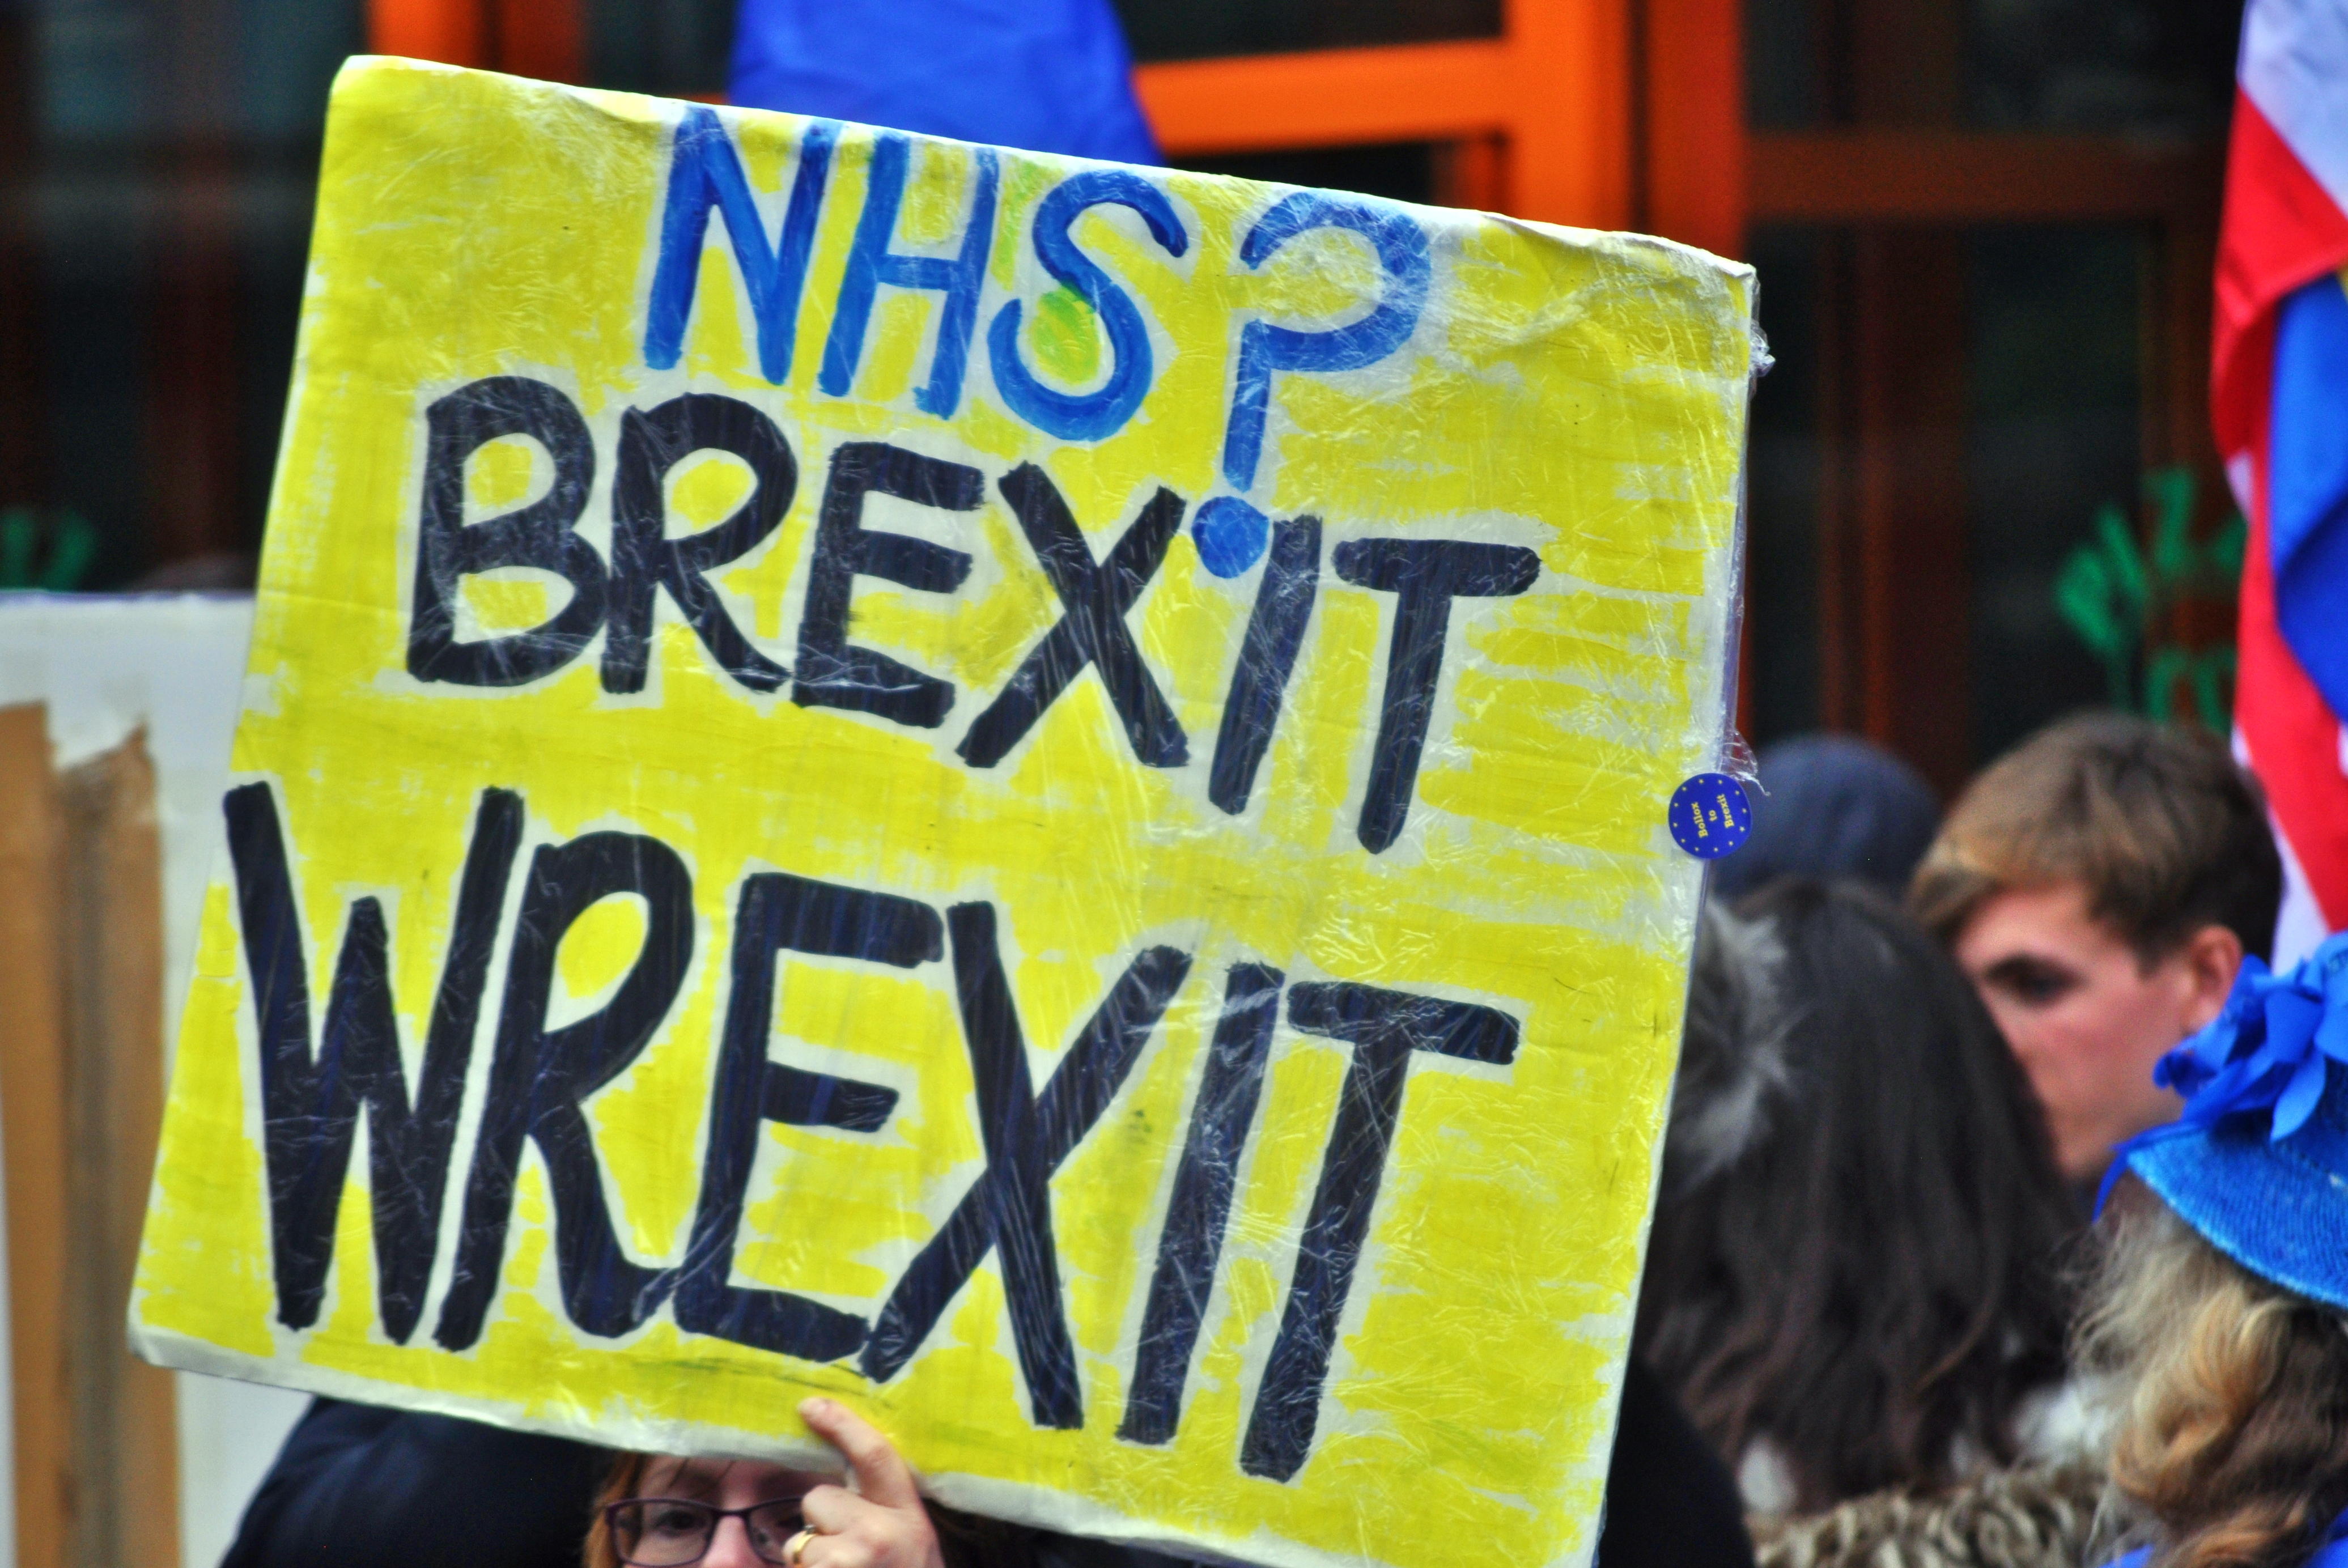 NHS?
BREXIT
WREXIT
Bollox
to
Brexit